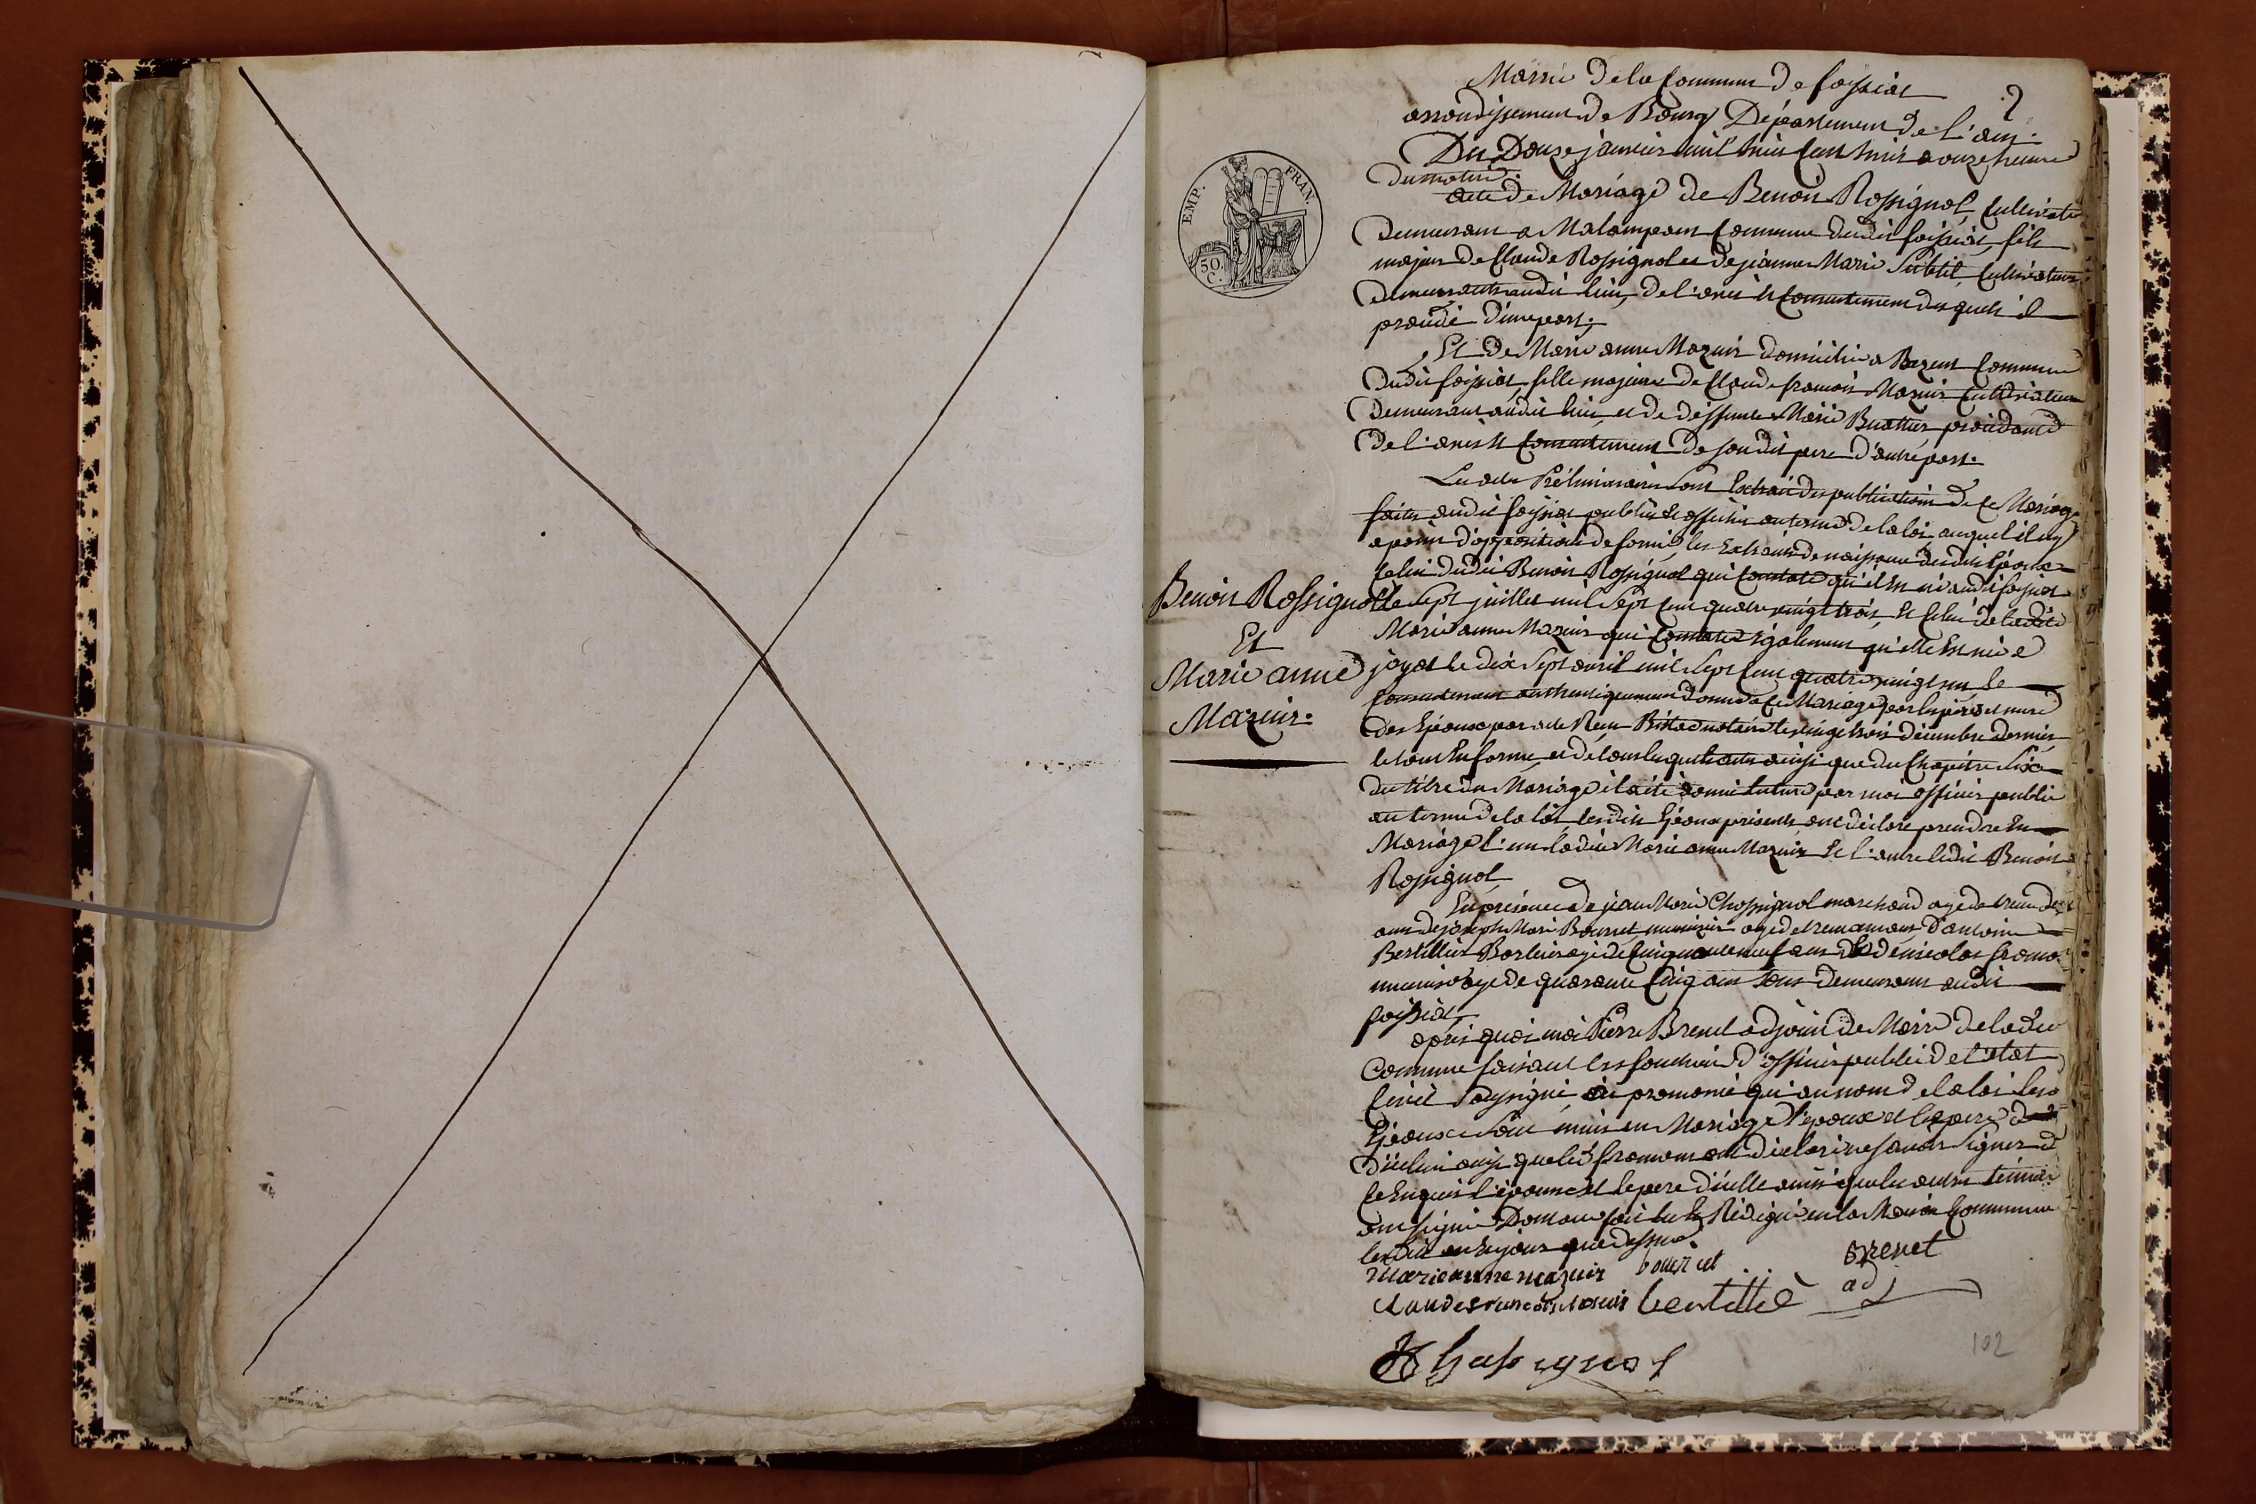 Mairie de la Commune de foissiat
2
arrondissement de Bourg Département de l'ain.
Du Douze janvier mil huit cent huit a onze heure
du matin.
acte de Mariage de Benoit Rossignol Cultivateur
demeurant a Malampeau Commune dudit foissiat fils
majeur de Claude Rossignol et de jeanne Marie Subtil Cultivateurs
demeurants audit lieu, de l'avis et Consentement desquels il
procede d'une part.
Et de Marie anne Mazuir domiciliée a Bezeut Commune
dudit foissiat fille majeure de Claude francois Mazuir Cultivateur
demeurant audit lieu et de deffunte Marie Buattier procedant
de l'avis et Consentement de son dit pere d'autre part.
Les actes Préliminaires sont Extrait des publications de ce Mariage
faites audit foissiat publiés et affichés au terme de la loi, auquel il n'y
a point d'opposition de formé, les Extraits de naissance desdits Epoux
Celui dudit Benoit Rossignol qui Constate qu'il est né audit foissiat
le sept juillet mil sept cent quatre vingt trois, et celui de ladite
Marie anne Mazuir qui Constate également qu'elle est née a
jayat le dix sept avril mil sept cent quatre vingt un le
Consentement authentiquement donné a ce Mariage par les pere et mere
des Epoux par acte Reçu notaire le vingt trois décembre dernier
le tout en forme, et de tous lesquels actes ainsi que du Chapitre six
du titre du Mariage il a été donné lecture par moi officier public
au terme de la loi lesdits Epoux présents ont déclaré prendre en
Mariage l'un ladite Marie anne Mazuir et l'autre ledit Benoit
Rossignol
En présence de jean Marie Chossignol marchand agé de trente deux
ans de joseph Marie Bourret menuisier agé de trente un ans d'antoine
Bertillier agé de Cinquante neuf ans et de nicolas
menuisier agé de quarante Cinq ans tous demeurants audit
foissiat
après quoi moi Pierre Brevet adjoint de Maire de ladite
Commune faisant les fonctions d'officier public de l'état
Civil soussigné, ai prononcé qui au nom de la loi les
Epoux sont unis en Mariage l'époux et le pere
d'icelui ainsi que ledit ont declaré ne savoir signer de
ce Enquis l'épouse et le pere d'icelle ainsi que les autres témoins
ont signé. Dont acte fait lu et Rédigé en la Maison Commune
lesdits an et jour que dessus
Marie anne mazuir bourret Brevet
adj
Claude francois Masuir bertillié
Chossignol
Benoit Rossignol
Et
Marie anne
Mazuir.
EMP. FRAN.
50.
C.
102